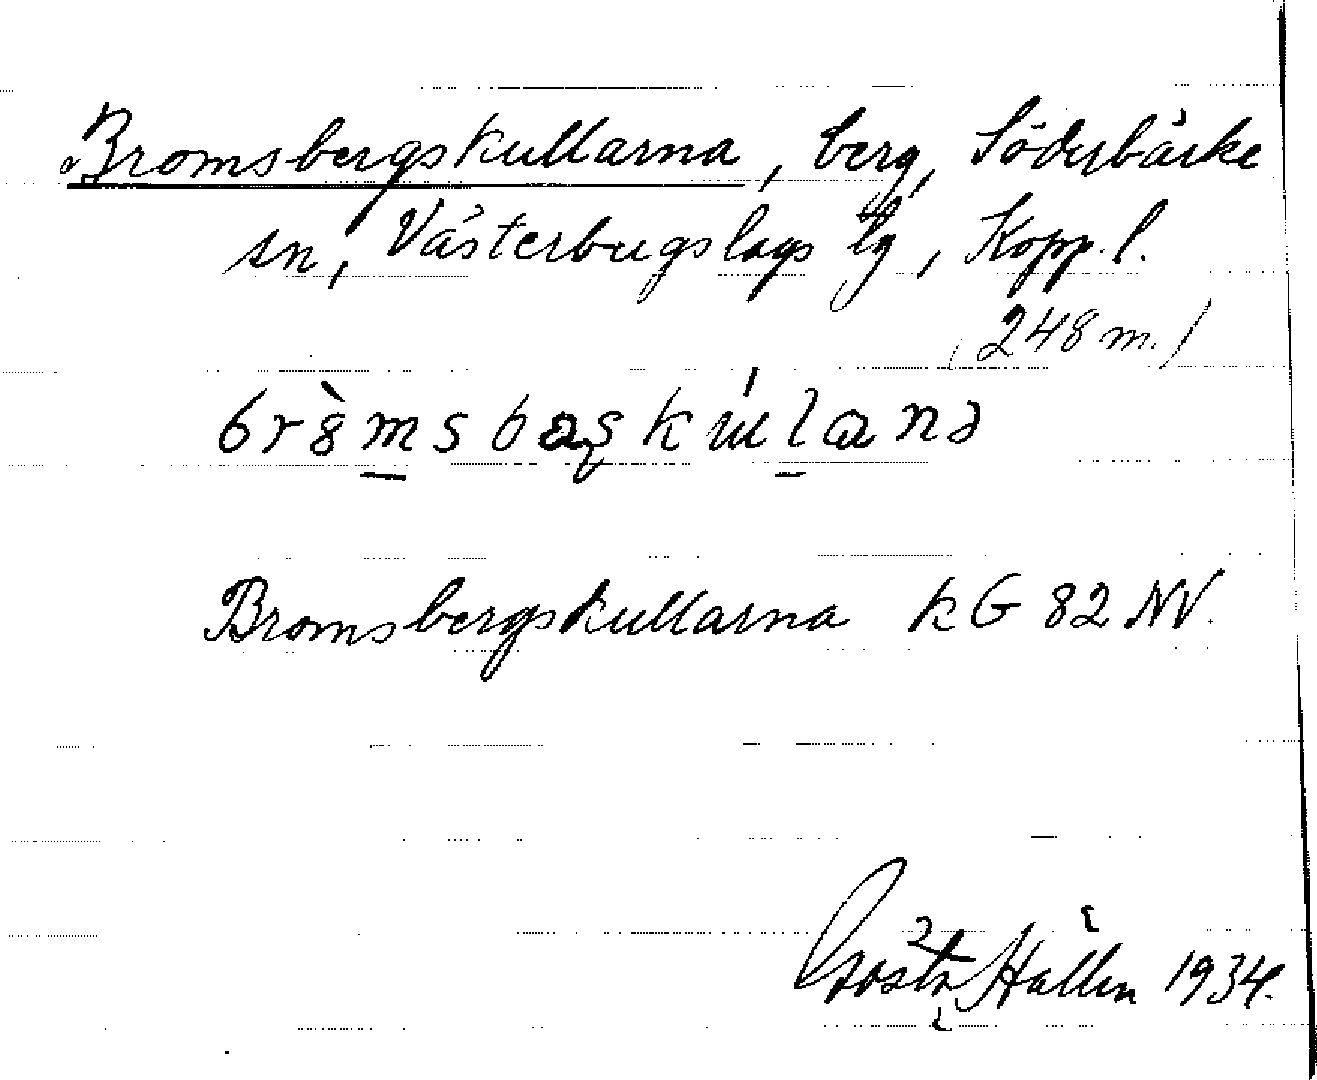 Bromsbergskullarna, berg, Söderbärke
sn, Västerbergslags tg, Kopp. l.
(248 m.)
Bromsbergskullarna kG 82 NV.
Gösta Hallén 1934.